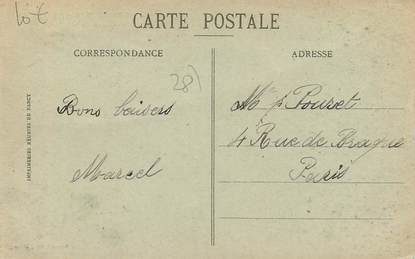 lot
CARTE POSTALE
CORRESPONDANCE
ADRESSE
28)
Bons baisers
Marcel
Pouret
4 Rue de Braque
Paris
IMPRIMERIES RÉUNIES DE NANCY